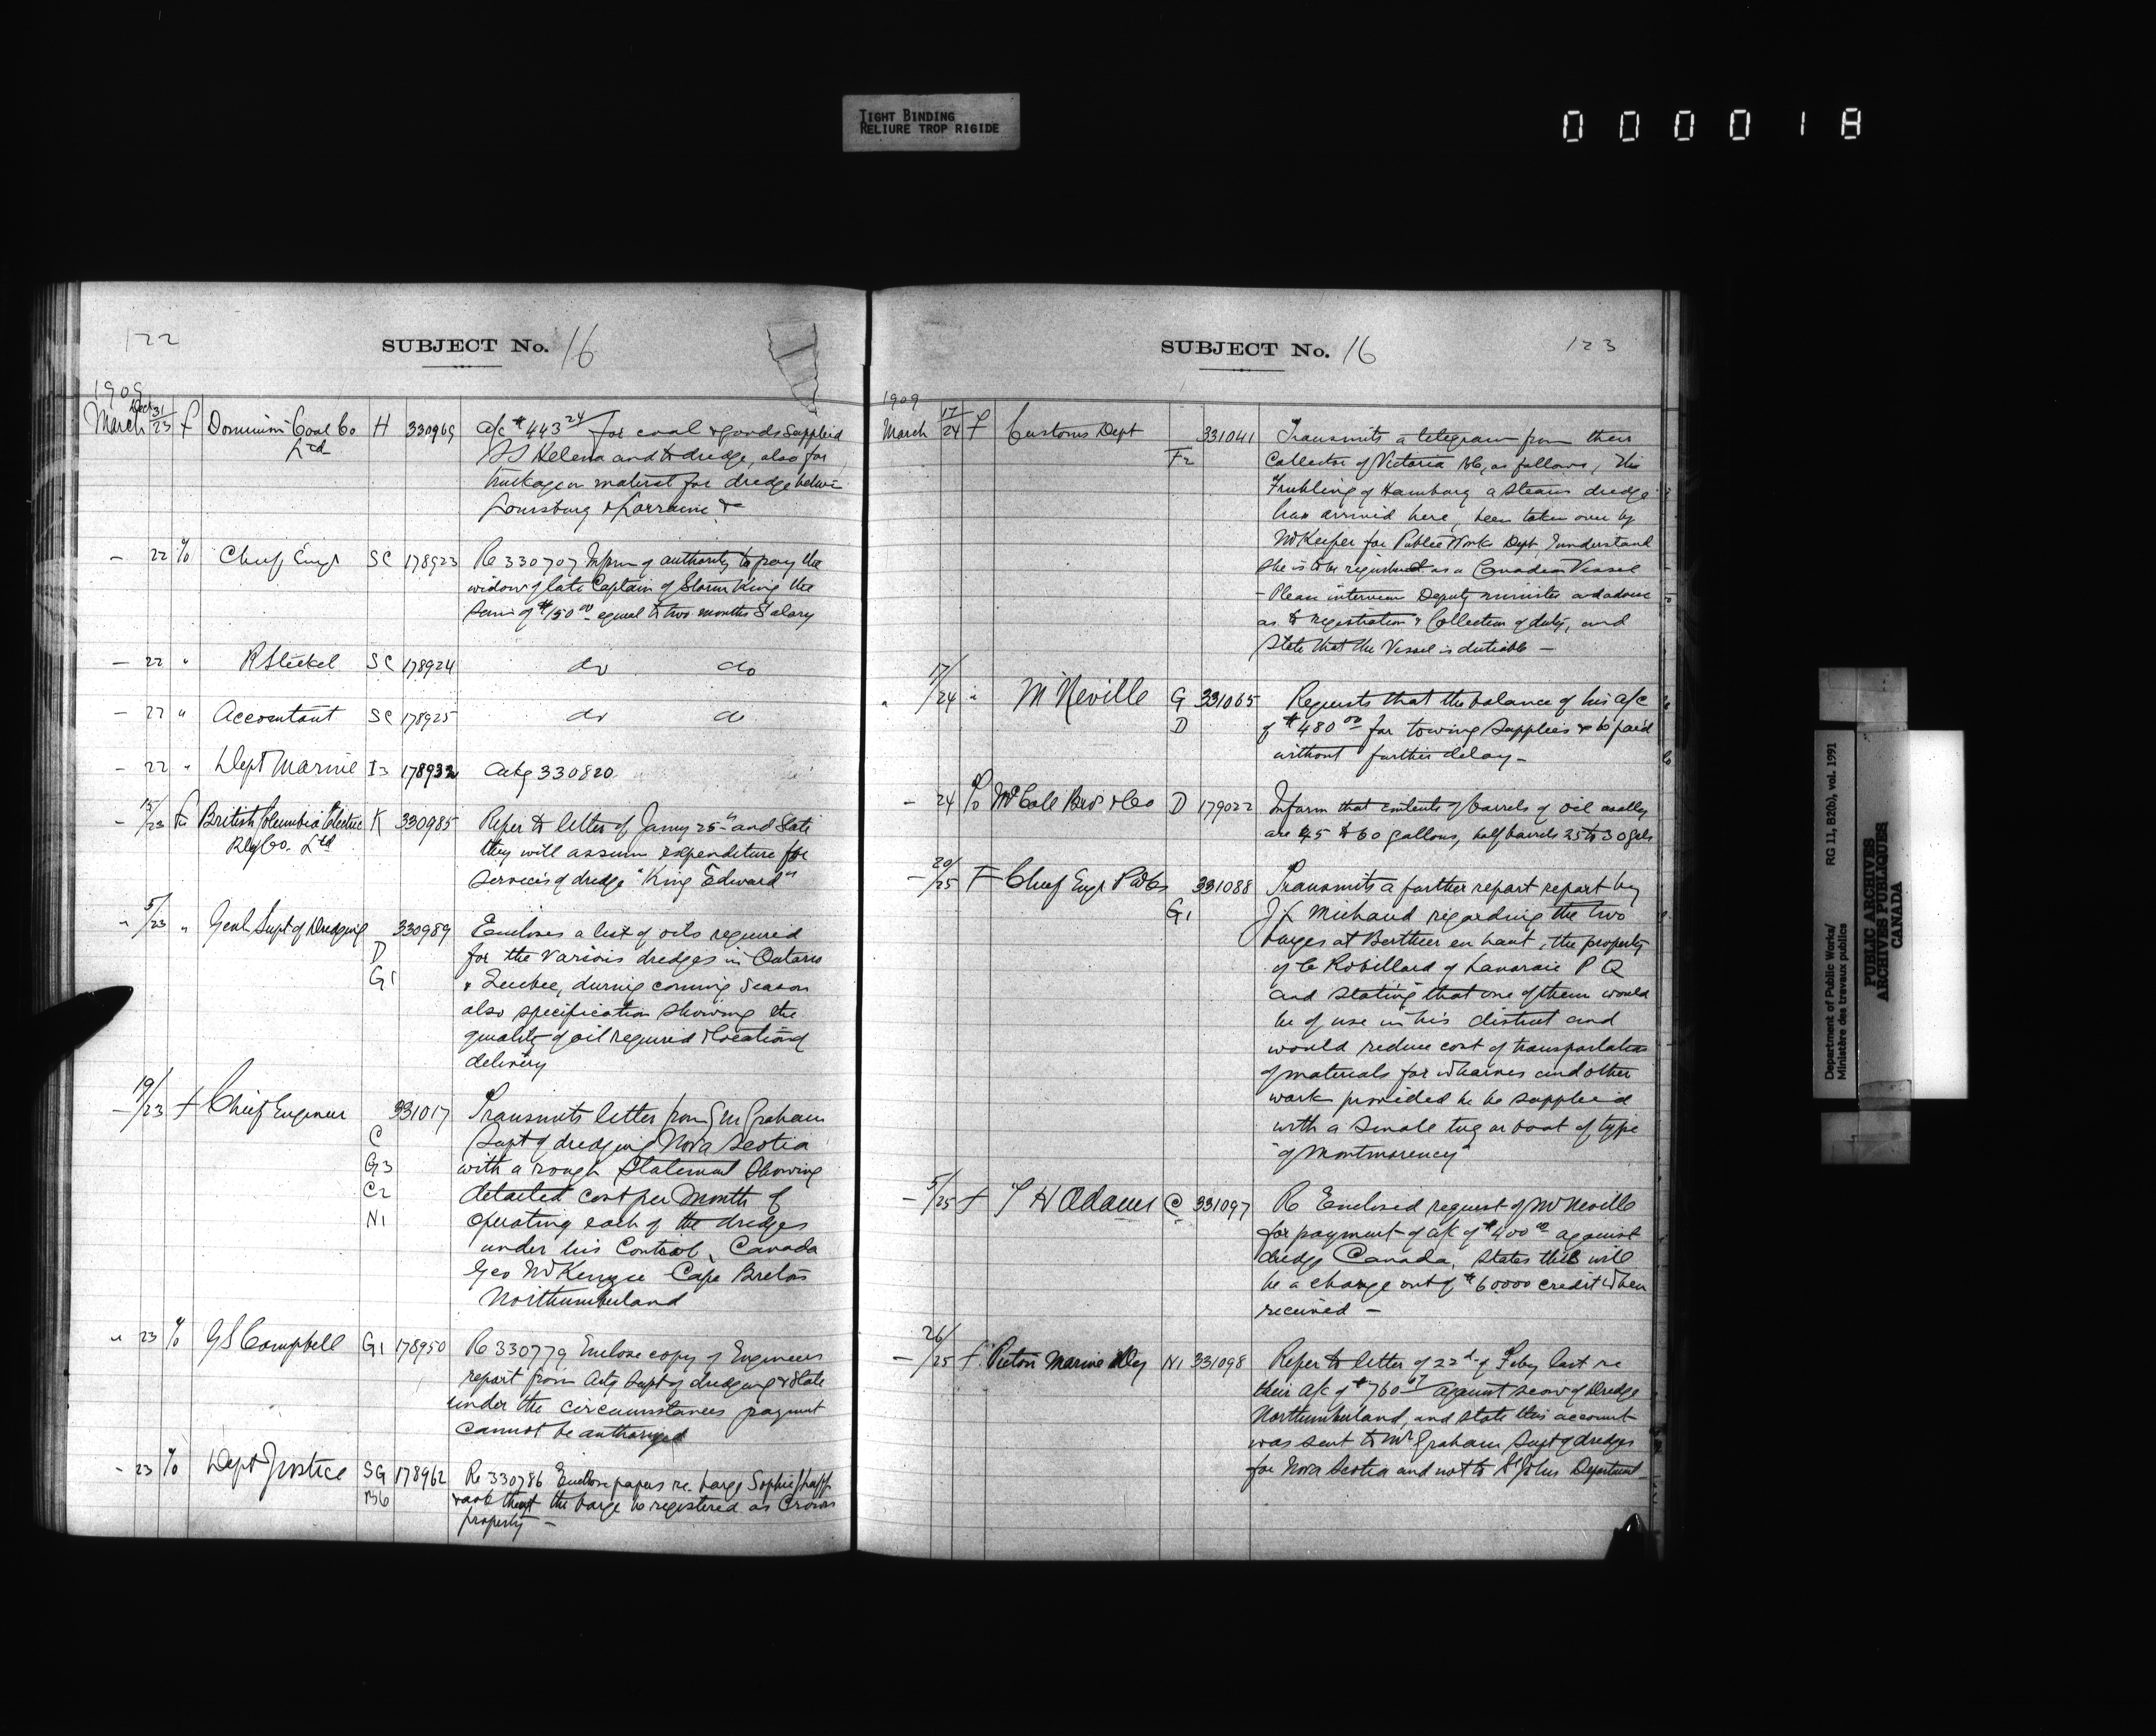 TIGHT BINDING
RELIURE TROP RIGIDE
000018
122
SUBJECT No. 16
1909
March Dec 31/23 f Dominion Coal Co H 330969 a/c $443.24 for coal & goods supplied
Ltd SS Helena and to dredge, also for
truckage on material for dredge betwn
Louisburg & Lorraine &
- 22 % Chief Engr SC 178923 Re 330707 Inform of authority to pay the
widow of late Captain of Storm King the
Sum of $150.00 equal to two months Salary
- 22 " R Steckel SC 178924 do do
- 22 " Accountant SC 178925 do do
- 22 " Dept Marine I3 178932 Ackg 330820
- 15/23 f British Columbia Electric K 330985 Refer to letter of Janry 25th and state
Rly Co. Ltd they will assume expenditure for
Services of dredge "King Edward"
" 5/23 " Genl Supt of Dredging 330989 Encloses a list of oils required
D for the various dredges in Ontario
G1 & Quebec, during coming Season
also specification showing the
quality of oil required & location of
delivery
- 19/23 f Chief Engineer 331017 Transmits letter from J M Graham
C Supt of dredging Nova Scotia
G3 with a rough Statement showing
C2 detailed cost per month of
N1 operating each of the dredges
under his Control, Canada
Geo McKenzie Cape Breton
Northumberland
" 23 % G S Campbell G1 178950 Re 330779 Enclose copy of Engineers
report from Actg Supt of dredging & state
under the circumstances payment
cannot be authorized
- 23 % Dept Justice SG 178962 Re 330786 Enclose papers re. barge Sophie
B6 & ask that the barge be registered as Crown
property -
SUBJECT No. 16
123
1909
March 17/24 f Customs Dept 331041 Transmits a telegram from their
F2 Collector of Victoria BC, as follows, The
Fruhling of Hamburg a steam dredge
has arrived here, been taken over by
Mr Keefer for Public Works Dept, I understand
she is to be registered as a Canadian Vessel
- Please interview Deputy minister and advise
as to registration & Collection of duty, and
State that the Vessel is dutiable -
" 17/24 " M Neville G 331065 Requests that the balance of his a/c
D of $480.00 for towing supplies & be paid
without further delay -
- 24 % McColl Bros & Co D 179022 Inform that contents of barrels of oil usually
are 45 to 60 gallons, half barrels 25 to 30 gals
- 20/25 F Chief Engr P Wks 331088 Transmits a further report report by
G1 J Michaud regarding the two
barges at Berthier en haut, the property
of C Robillard of Lanoraie P Q
and stating that one of them would
be of use in his district and
would reduce cost of transportation
of materials for wharves and other
work provided he be supplied
with a small tug or boat of type
"of Montmorency"
- 5/25 f T H Adams C 331097 Re Enclosed request of M Neville
for payment of a/c of $400.00 against
dredge Canada, states this will
be a charge out of $60000 credit when
received -
- 26/25 f Pictou Marine Rly N1 331098 Refer to letter of 22d of Feby last re
their a/c of $760.67 against scow of Dredge
Northumberland, and state this account
was sent to Mr Graham Supt of dredges
for Nova Scotia and not to St John Department
Department of Public Works/
Ministère des travaux publics
RG 11, B2(b), vol. 1991
PUBLIC ARCHIVES
ARCHIVES PUBLIQUES
CANADA